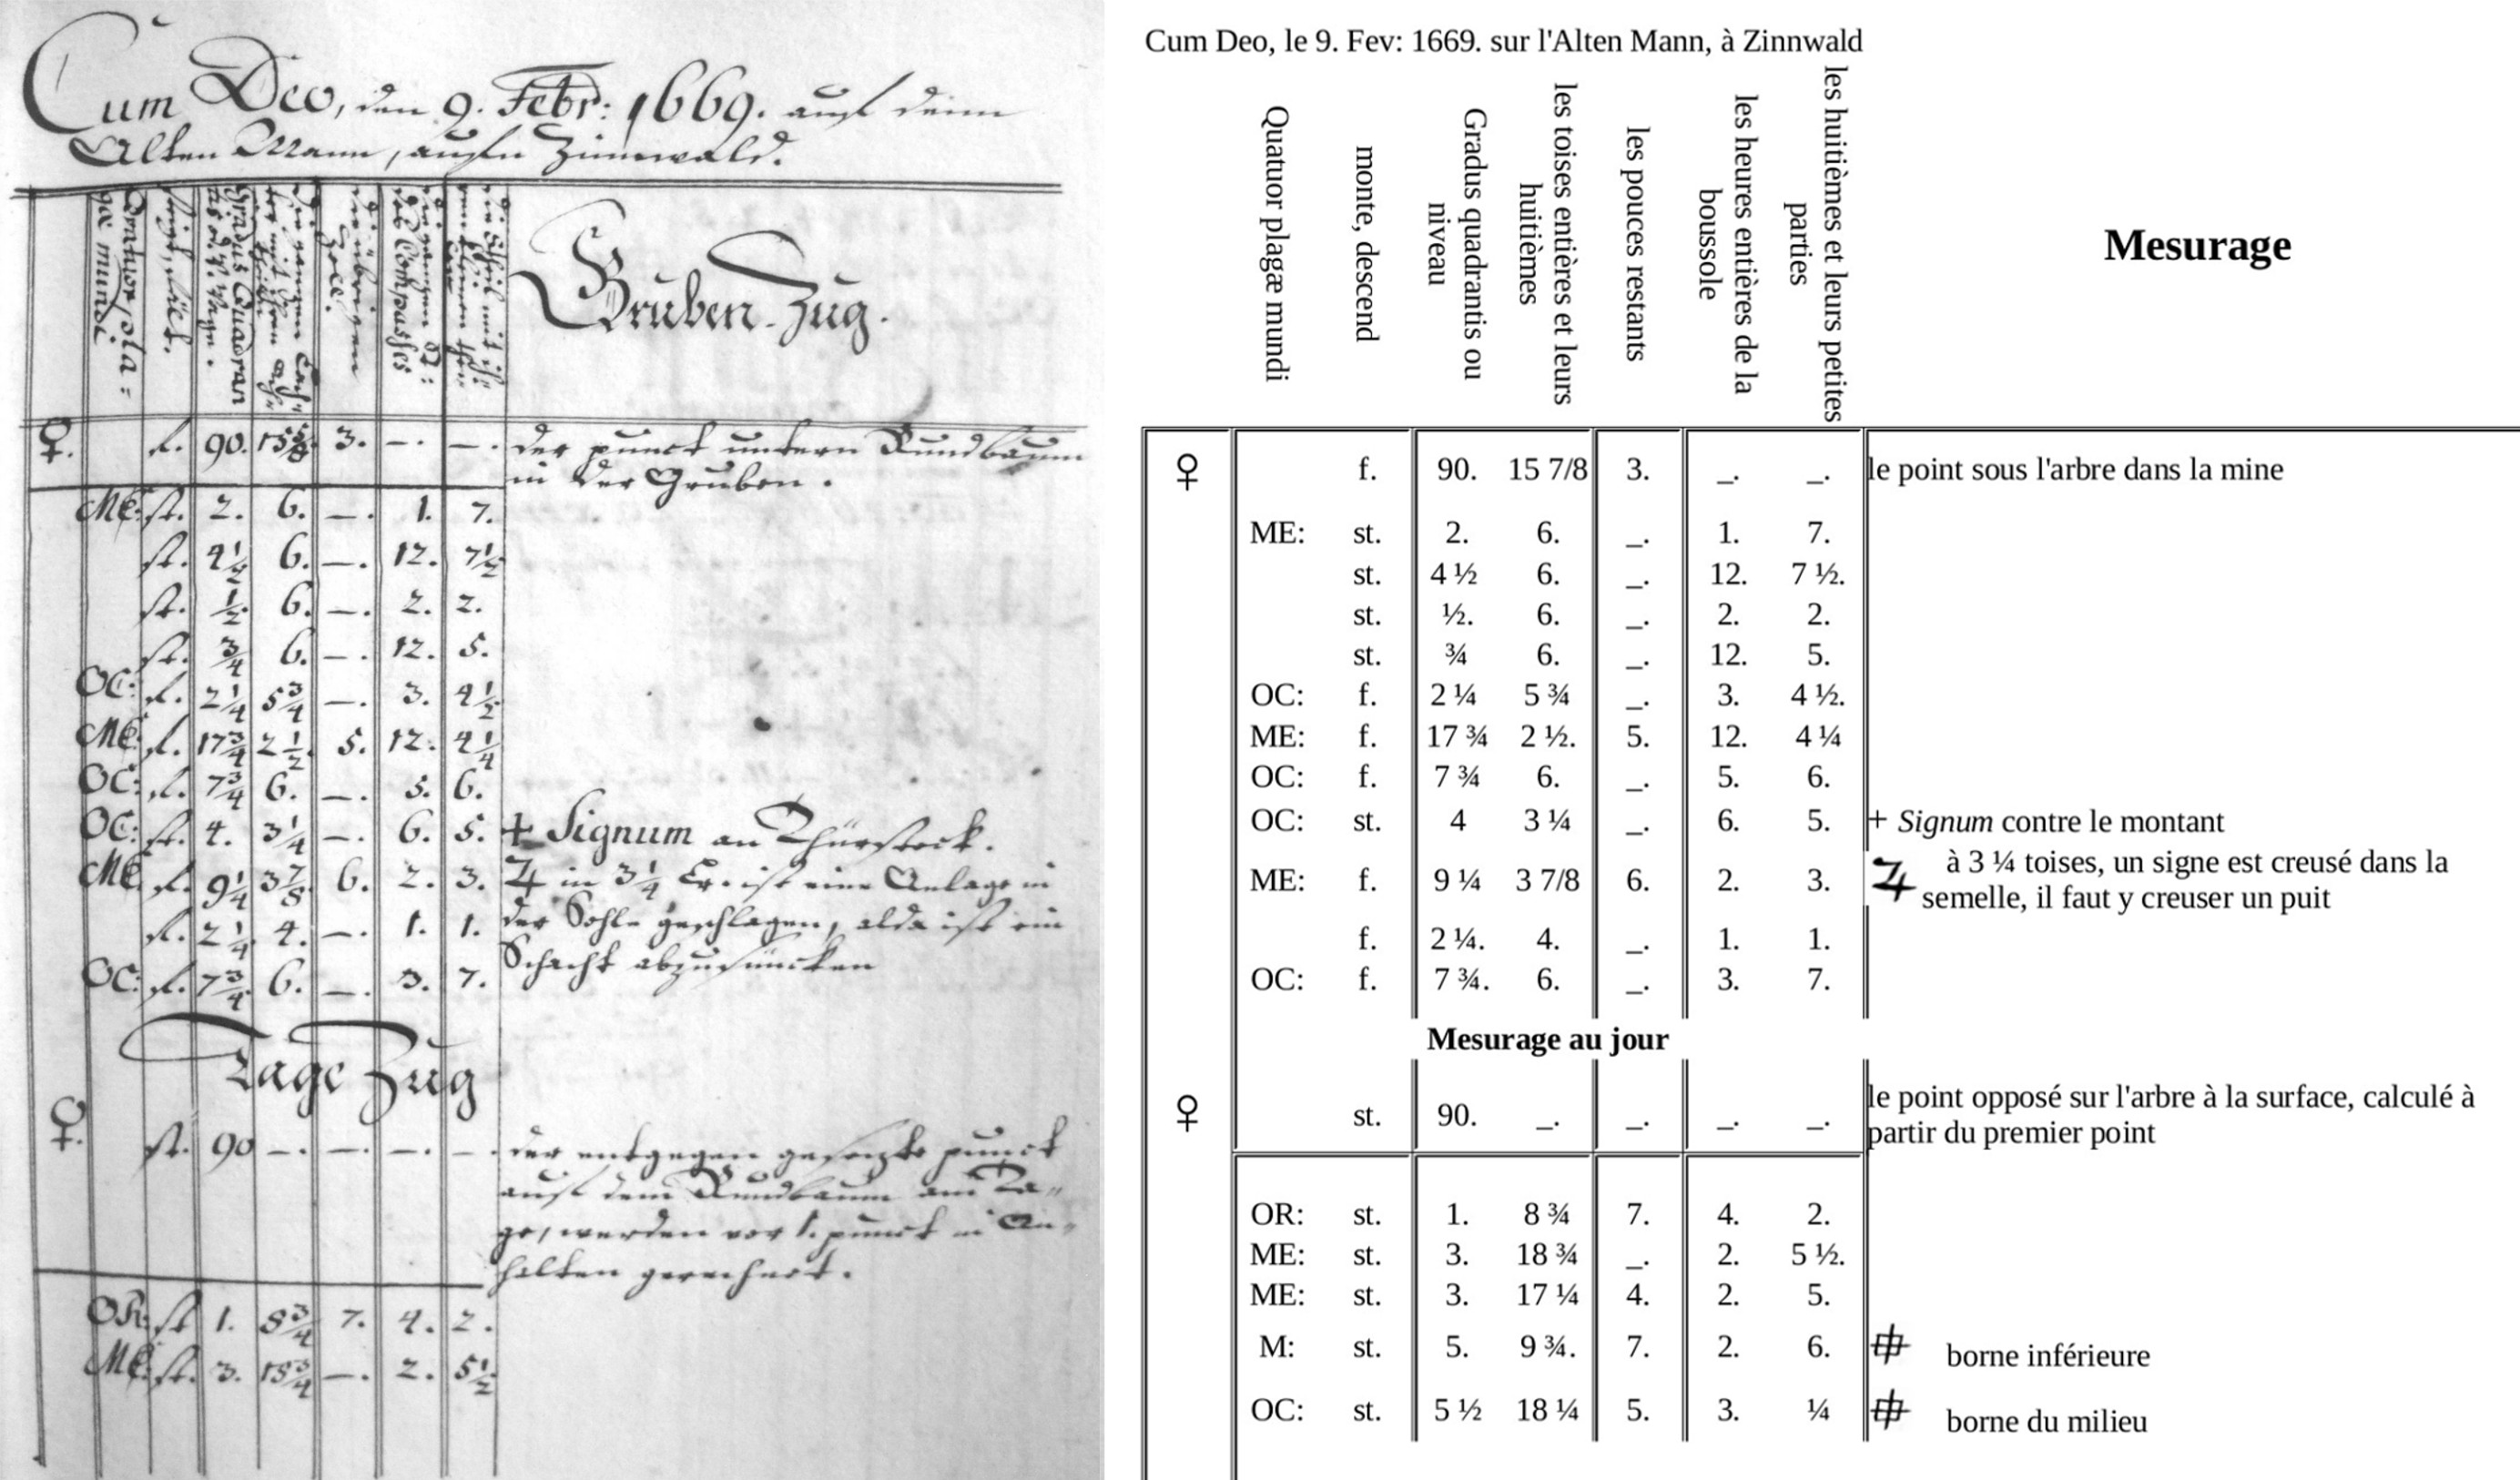 Cum Deo, den 9. Febr: 1669. auf dem
Alten Mann, aufn Zinnwald.
Quatuor pla=
gæ mundi
steigt, fält.
Gradus Quadran
tis od. d. Wage.
die übrigen
Zolle.
des Compasses
Gruben-Zug.
♀. f. 90. 3. —. —. der punct untern Rundbaum
in der Gruben.
ME: st. 2. 6. —. 1. 7.
st. 4½ 6. —. 12. 7½
st. ½ 6. —. 2. 2.
st. ¾ 6. —. 12. 5.
OC: f. 2¼ 5¾ —. 3. 4½
ME: f. 17¾ 2½. 5. 12. 4¼
OC: f. 7¾ 6. —. 5. 6.
OC: st. 4. 3¼ —. 6. 5. + Signum an Thürstock.
ME: f. 9¼ 3⅞ 6. 2. 3. ♃ in 3¼ Lr. ist eine Anlage in
f. 2¼ 4. —. 1. 1. der Sohle geschlagen, alda ist ein
Schacht abzusüncken
OC: f. 7¾ 6. —. 3. 7.
Tage Zug
♀. st. 90 —. —. —. —. der entgegen gesezte punct
auf dem Rundbaum am Ta„
ge, werden vor 1. punct in An„
halten gerechnet.
OR: st 1. 8¾ 7. 4. 2.
ME: st. 3. 18¾ —. 2. 5½
Cum Deo, le 9. Fev: 1669. sur l'Alten Mann, à Zinnwald
Quatuor plagæ mundi
monte, descend
Gradus quadrantis ou
niveau
les toises entières et leurs
huitièmes
les pouces restants
les heures entières de la
boussole
les huitièmes et leurs petites
parties
Mesurage
♀ f. 90. 15 7/8 3. _. _. le point sous l'arbre dans la mine
ME: st. 2. 6. _. 1. 7.
st. 4 ½ 6. _. 12. 7 ½.
st. ½. 6. _. 2. 2.
st. ¾ 6. _. 12. 5.
OC: f. 2 ¼ 5 ¾ _. 3. 4 ½.
ME: f. 17 ¾ 2 ½. 5. 12. 4 ¼
OC: f. 7 ¾ 6. _. 5. 6.
OC: st. 4 3 ¼ _. 6. 5. + Signum contre le montant
ME: f. 9 ¼ 3 7/8 6. 2. 3. ♃ à 3 ¼ toises, un signe est creusé dans la
semelle, il faut y creuser un puit
f. 2 ¼. 4. _. 1. 1.
OC: f. 7 ¾. 6. _. 3. 7.
Mesurage au jour
♀ st. 90. _. _. _. _. le point opposé sur l'arbre à la surface, calculé à
partir du premier point
OR: st. 1. 8 ¾ 7. 4. 2.
ME: st. 3. 18 ¾ _. 2. 5 ½.
ME: st. 3. 17 ¼ 4. 2. 5.
M: st. 5. 9 ¾. 7. 2. 6. borne inférieure
OC: st. 5 ½ 18 ¼ 5. 3. ¼ borne du milieu